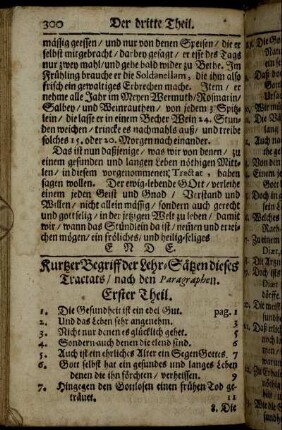 300 Der dritte Theil.
mässig geessen / und nur von denen Speisen / die er
selbst mitgebracht / darbey gesagt / er esse des Tags
nur zwey mahl / und gehe bald wider zu Bethe. Im
Frühling brauche er die Soldanellam, die ihm also
frisch ein gewaltiges Erbrechen mache. Item / er
nehme alle Jahr im Meyen Wermuth / Roßmarin /
Salbey / und Weinrauthen / von jedem 3 Spitz-
lein / die lasse er in einem Becher Wein 24. Stun-
den weichen / trincke es nachmahls auß / und treibe
solches 15. oder 20. Morgen nach einander.
Das ist nun dasjenige / was wir von denen / zu
einem gesunden und langen Leben nöthigen Mitte-
len / in diesem vorgenommenen Tractat, haben
sagen wollen. Der ewig-lebende GOtt / verleihe
einem jeden Geist und Gnad / Verstand und
Willen / nicht allein mässig / sondern auch gerecht
und gottselig / in der jetzigen Welt zu leben / damit
wir / wann das Stündlein da ist / nemen und errei-
chen mögen / ein fröliches / und heilig-seliges
E N D E.
Kurtzer Begriff der Lehr-Sätzen dieses
Tractats / nach den Paragraphen.
Erster Theil.
1. Die Gesundheit ist ein edel Gut. pag. 1
2. Und das Leben sehr angenehm. 3
3. Nicht nur denen es glücklich gehet. 5
4. Sondern auch denen die elend sind. 6
5. Auch ist ein ehrliches Alter ein Segen Gottes. 7
6. Gott selbst hat ein gesundes und langes Leben
denen die ihn förchten / verheissen. 9
7. Hingegen den Gottlosen einen frühen Tod ge-
träuet. 11
8. Die